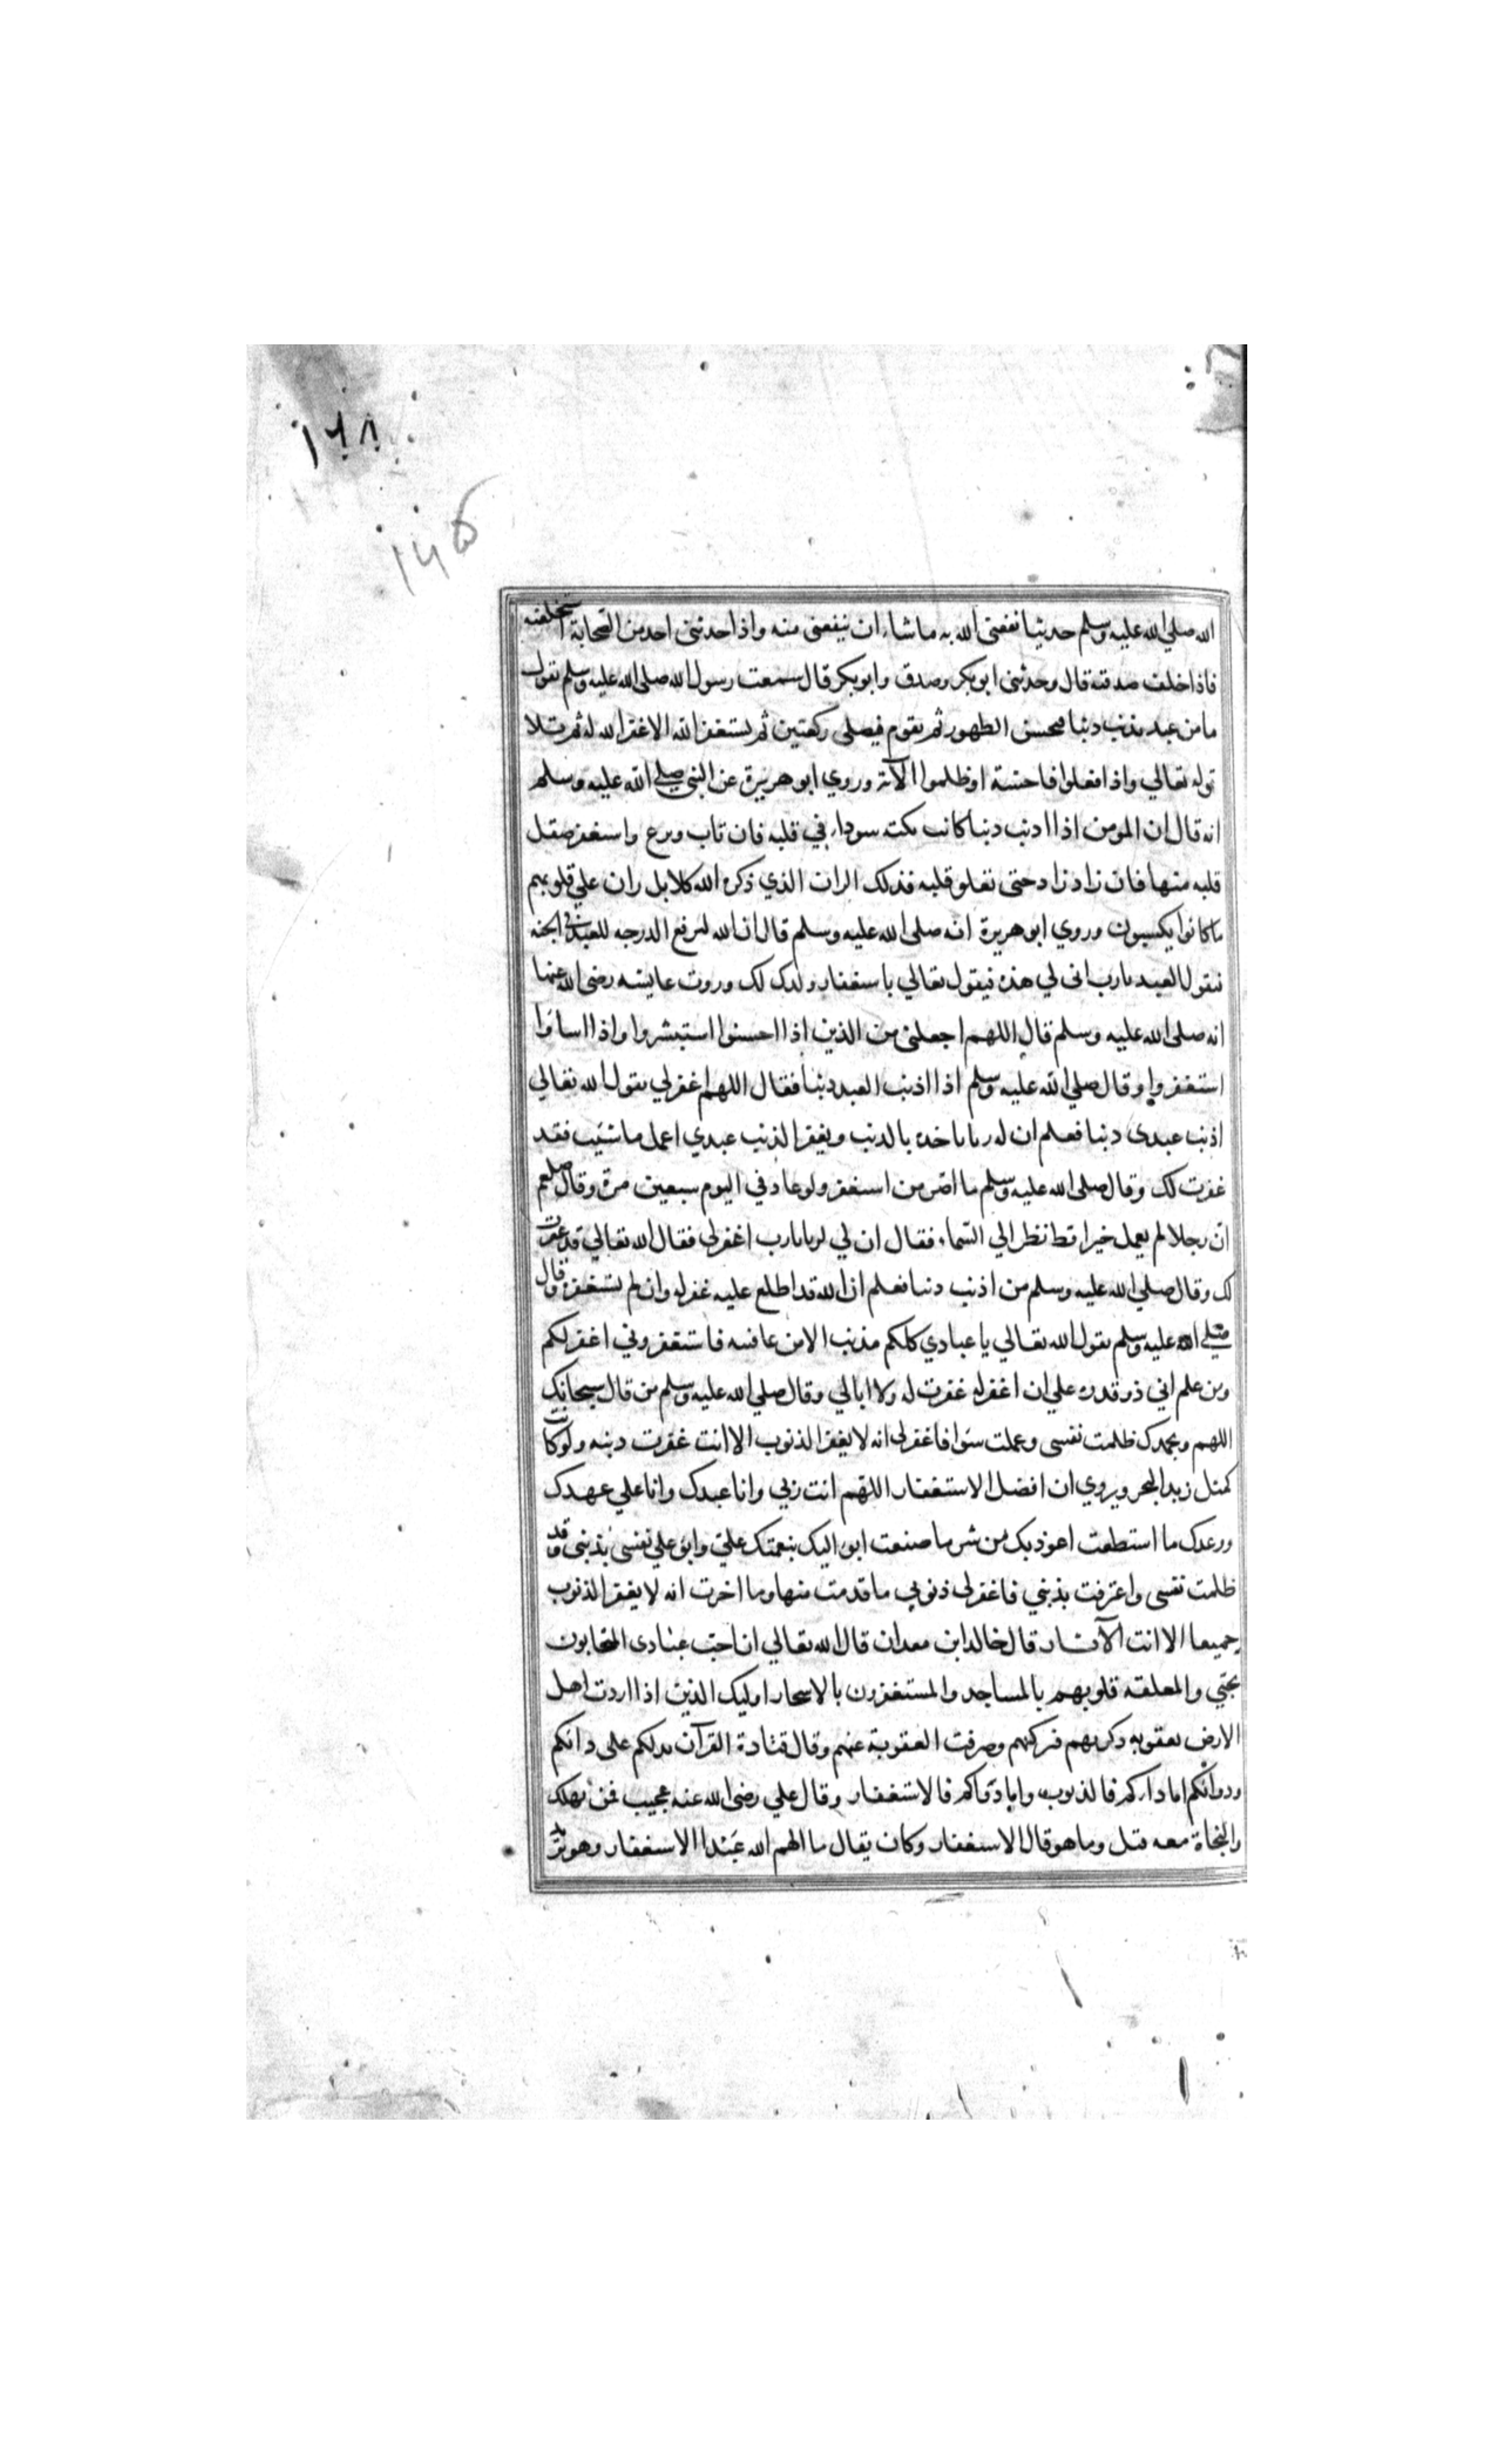 ١٦٨
١٦۵
الله صلي الله عليه وسلم حديثا نفعني الله به ما شاء ان ينفعني منه واذا حدثني احد من الصحابة استحلفته
فاذا خلف صدقته قال وحدثني ابوبكر وصدق وابوبكر قال سمعت رسول الله صلى الله عليه وسلم يقول
ما من عبد يذنب دنبا فيحسن الطهور ثم يقوم فيصلى ركعتين ثم يستغفر الله الا غفر الله له ثم تلا
قوله تعالي واذا فعلوا فاحشة او ظلموا الآية وروي ابو هريرة عن النبي صلي الله عليه وسلم
انه قال ان المومن اذا ادنب دنبا كانت نكته سوداء في قلبه فان تاب ونزع واستغفر صقل
قلبه منها فان زاد زادحتى تغلو قلبه فذلك الران الذي ذكره الله كلا بل ران علي قلوبهم
ما كانوا يكسبون وروي ابو هريرة انه صلى الله عليه وسلم قال ان الله ليرفع الدرجه للعبد في الجنه
فيقول العبد يا رب انى لي هذه فيقول تعالي باستغفار ولدك لك وروت عايشه رضى الله عنها
انه صلى الله عليه وسلم قال اللهم اجعلني من الذين اذا احسنوا استبشروا واذا اساؤا
استغفروا وقال صلي الله عليه وسلم اذا اذنب العبد دنبا فقال اللهم اغفر لي يقول الله تعالي
اذنب عبدى دنبا فعلم ان له ربا ياخذه بالدنب ويغفر الذنب عبدي اعمل ما شيت فقد
غفرت لك وقال صلى الله عليه وسلم ما اصر من استغفر ولو عاد في اليوم سبعين مرة وقال صلعم
ان رجلا لم يعمل خيرا قط نظر الي السماء فقال ان لي ربا يا رب اغفر لى فقال الله تعالي قد غفرت
لك وقال صلي الله عليه وسلم من اذنب دنبا فعلم ان الله قد اطلع عليه غفر له وان لم يستغفره وقال
صلي الله عليه وسلم يقول الله تعالي يا عبادي كلكم مذنب الا من عافيته فاستغفروني اغفر لكم
ومن علم اني ذو قدره علي ان اغفر له غفرت له ولا ابالي وقال صلي الله عليه وسلم من قال سبحانك
اللهم وبحمدك ظلمت نفسى وعملت سوا فاغفر لى انه لا يغفر الذنوب الا انت غفرت دنبه ولو كانت
كمثل زبد البحر ويروي ان افضل الاستغفار اللهم انت ربي وانا عبدك وانا علي عهدك
ووعدك ما استطعت اعوذ بك من شر ما صنعت ابو اليك بنعمتك علي وابو علي نفسي بذنبي وقد
ظلمت نفسى واعترفت بذنبي فاغفر لى ذنوبي ما قدمت منها وما اخرت انه لا يغفر الذنوب
جميعا الا انت الآثار قال خالد ابن معدان قال الله تعالي ان احب عبادى المتحابون
بحبي والمعلقه قلوبهم بالمساجد والمستغفرون بالاسحار اوليك الذين اذا اردت اهل
الارض بعقوبه ذكرتهم فتركتهم وصرفت العقوبة عنهم وقال قتادة القرآن يدلكم على دائكم
ودوائكم اما داءكم فالذنوب واما دواكم فالاستغفار وقال علي رضى الله عنه عجيب فمن يهلك
والنجاة معه قيل وما هو قال الاستغفار وكان يقال ما الهم الله عبدا الاستغفار وهو